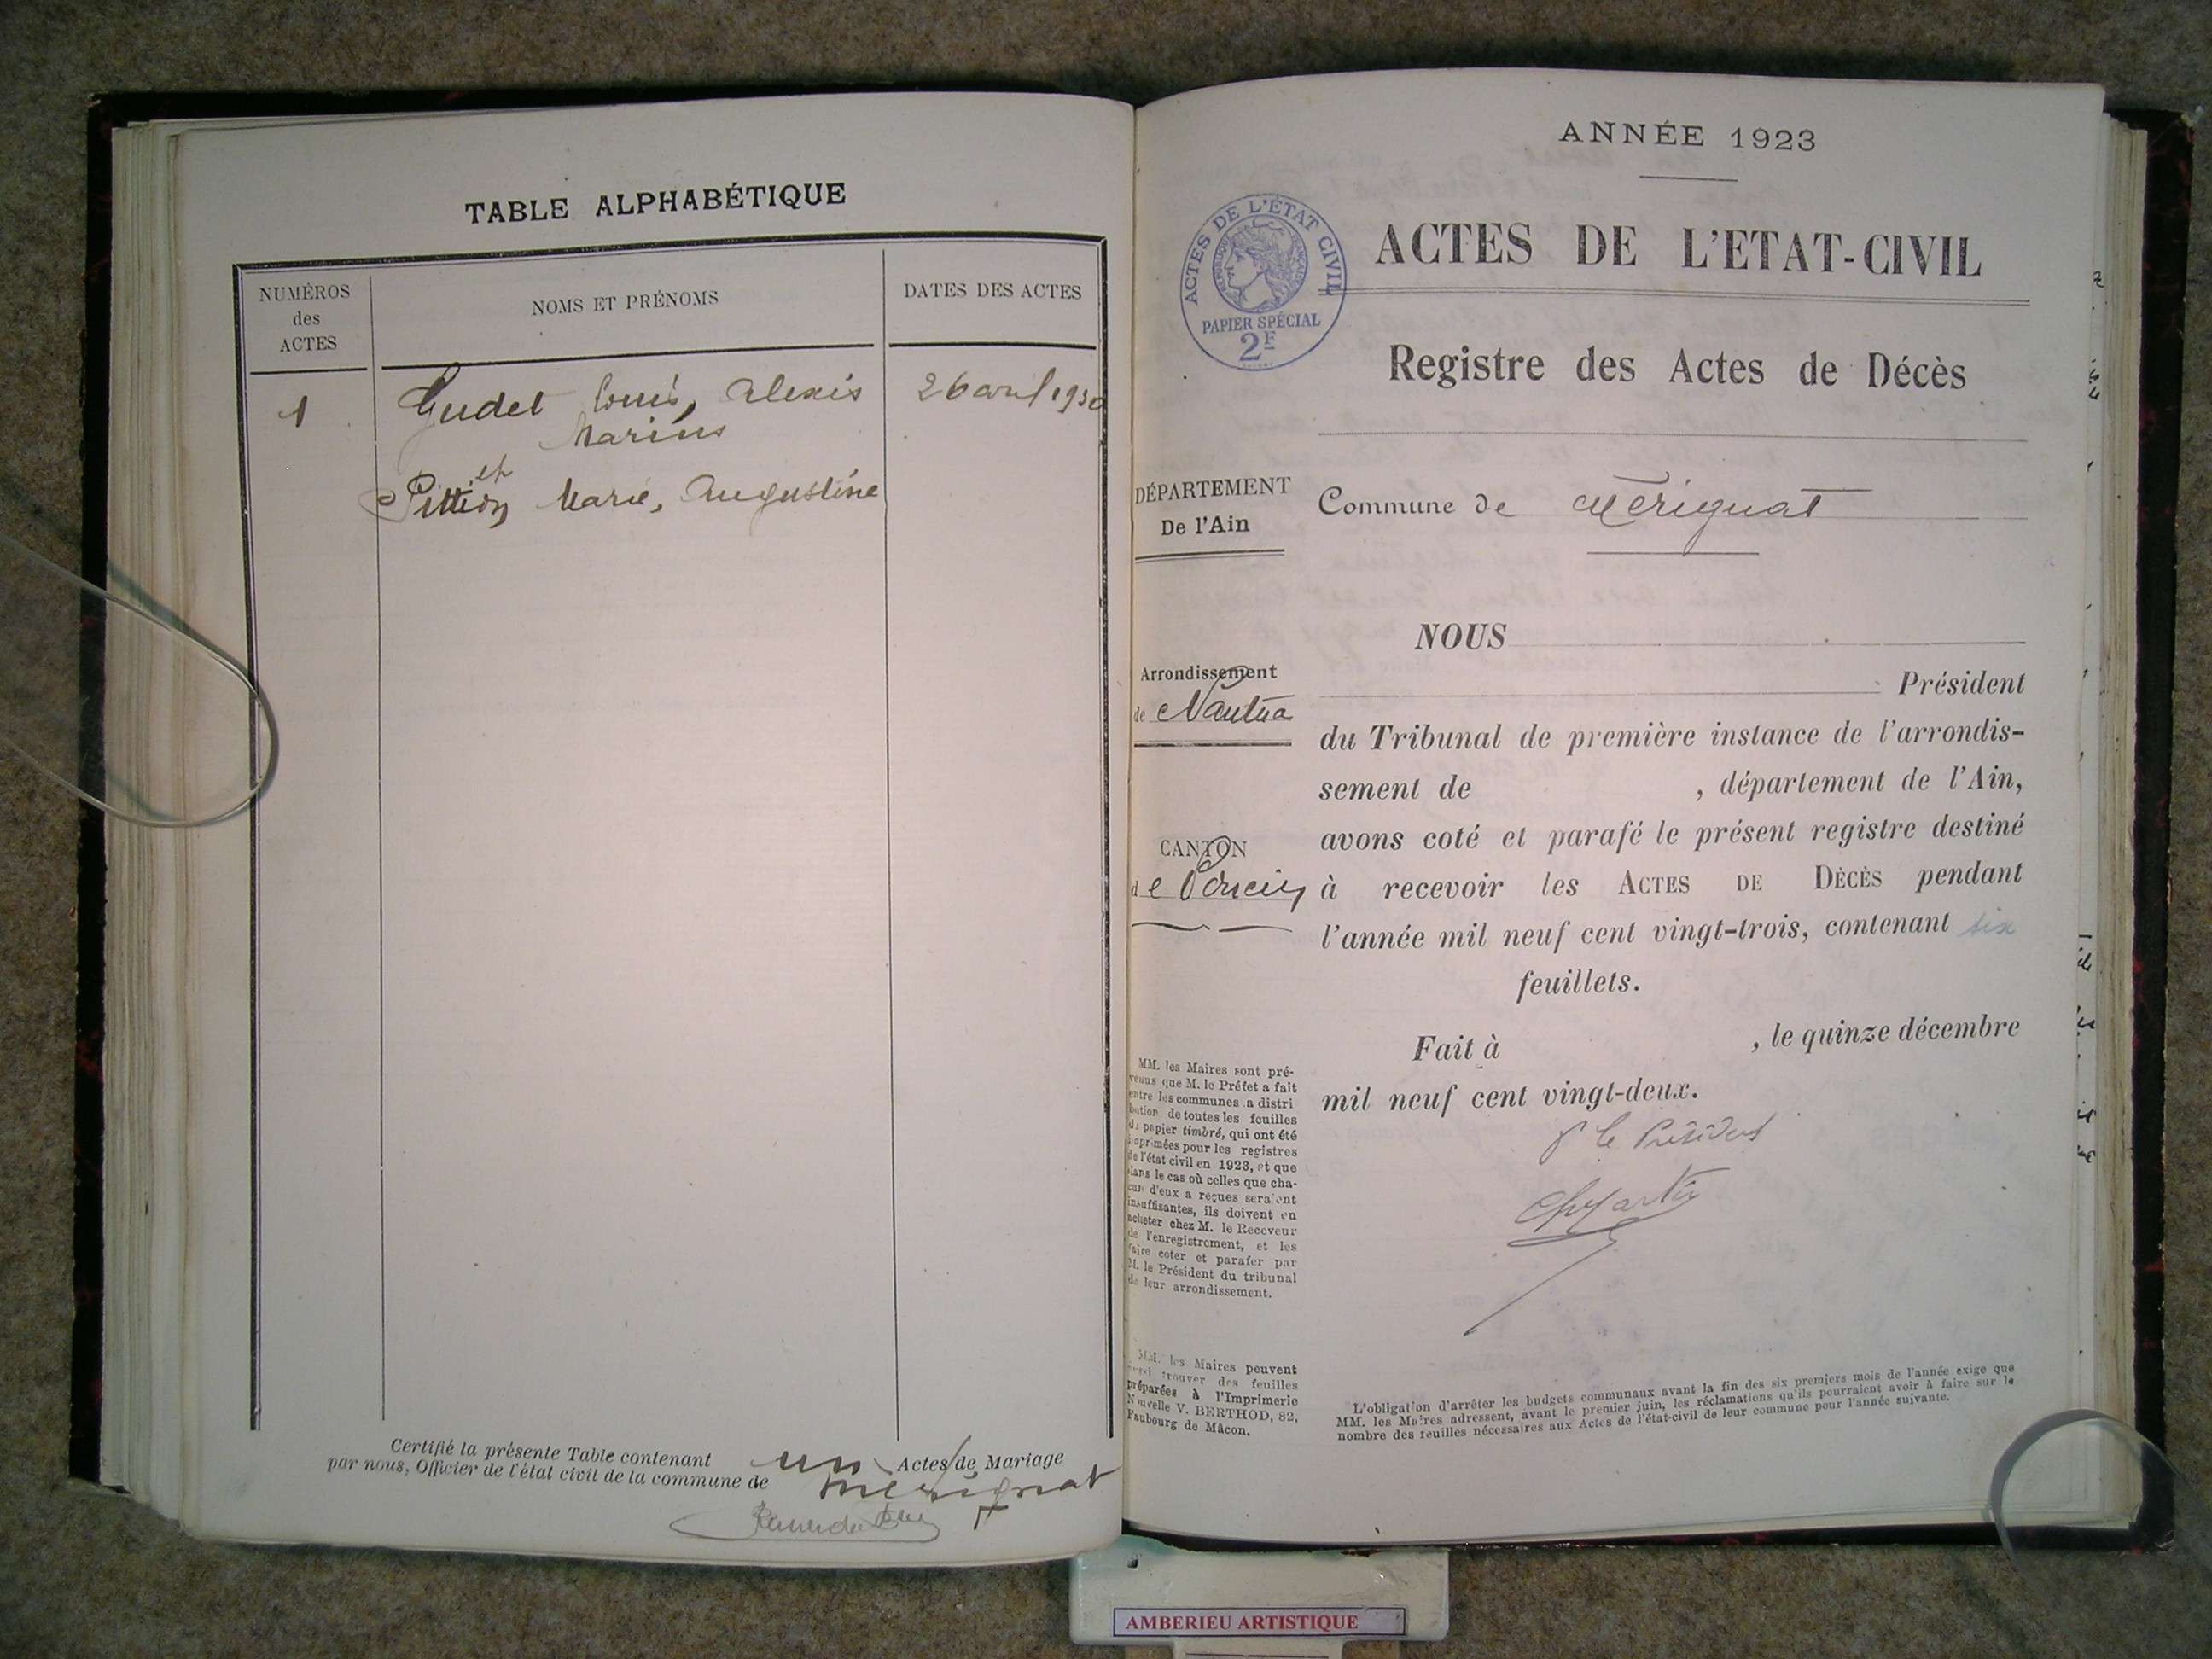 TABLE ALPHABÉTIQUE
NUMÉROS
des
ACTES
NOMS ET PRÉNOMS
DATES DES ACTES
1
Gudet Louis, Alexis
Marius
26 avril 1930
et
Pittion Marie, Augustine
Certifié la présente Table contenant un Actes de Mariage
par nous, Officier de l'état civil de la commune de Mérignat
ANNÉE 1923
ACTES DE L'ÉTAT CIVIL
PAPIER SPÉCIAL
2F
ACTES DE L'ETAT-CIVIL
Registre des Actes de Décès
DÉPARTEMENT
De l'Ain
Commune de Mérignat
NOUS
Arrondissement
de Nantua
Président
du Tribunal de première instance de l'arrondis-
sement de , département de l'Ain,
avons coté et parafé le présent registre destiné
CANTON
de Poncin
à recevoir les ACTES DE DÉCÈS pendant
l'année mil neuf cent vingt-trois, contenant six
feuillets.
Fait à , le quinze décembre
mil neuf cent vingt-deux.
P. le Président
MM. les Maires sont pré-
venus que M. le Préfet a fait
entre les communes la distri
bution de toutes les feuilles
du papier timbré, qui ont été
imprimées pour les registres
de l'état civil en 1923, et que
dans le cas où celles que cha-
cun d'eux a reçues seraient
insuffisantes, ils doivent en
acheter chez M. le Receveur
de l'enregistrement, et les
faire coter et parafer par
M. le Président du tribunal
de leur arrondissement.
MM. les Maires peuvent
aussi trouver des feuilles
préparées à l'Imprimerie
Nouvelle V. BERTHOD, 82,
Faubourg de Mâcon.
L'obligation d'arrêter les budgets communaux avant la fin des six premiers mois de l'année exige que
MM. les Maires adressent, avant le premier juin, les réclamations qu'ils pourraient avoir à faire sur le
nombre des feuilles nécessaires aux Actes de l'état-civil de leur commune pour l'année suivante.
AMBERIEU ARTISTIQUE